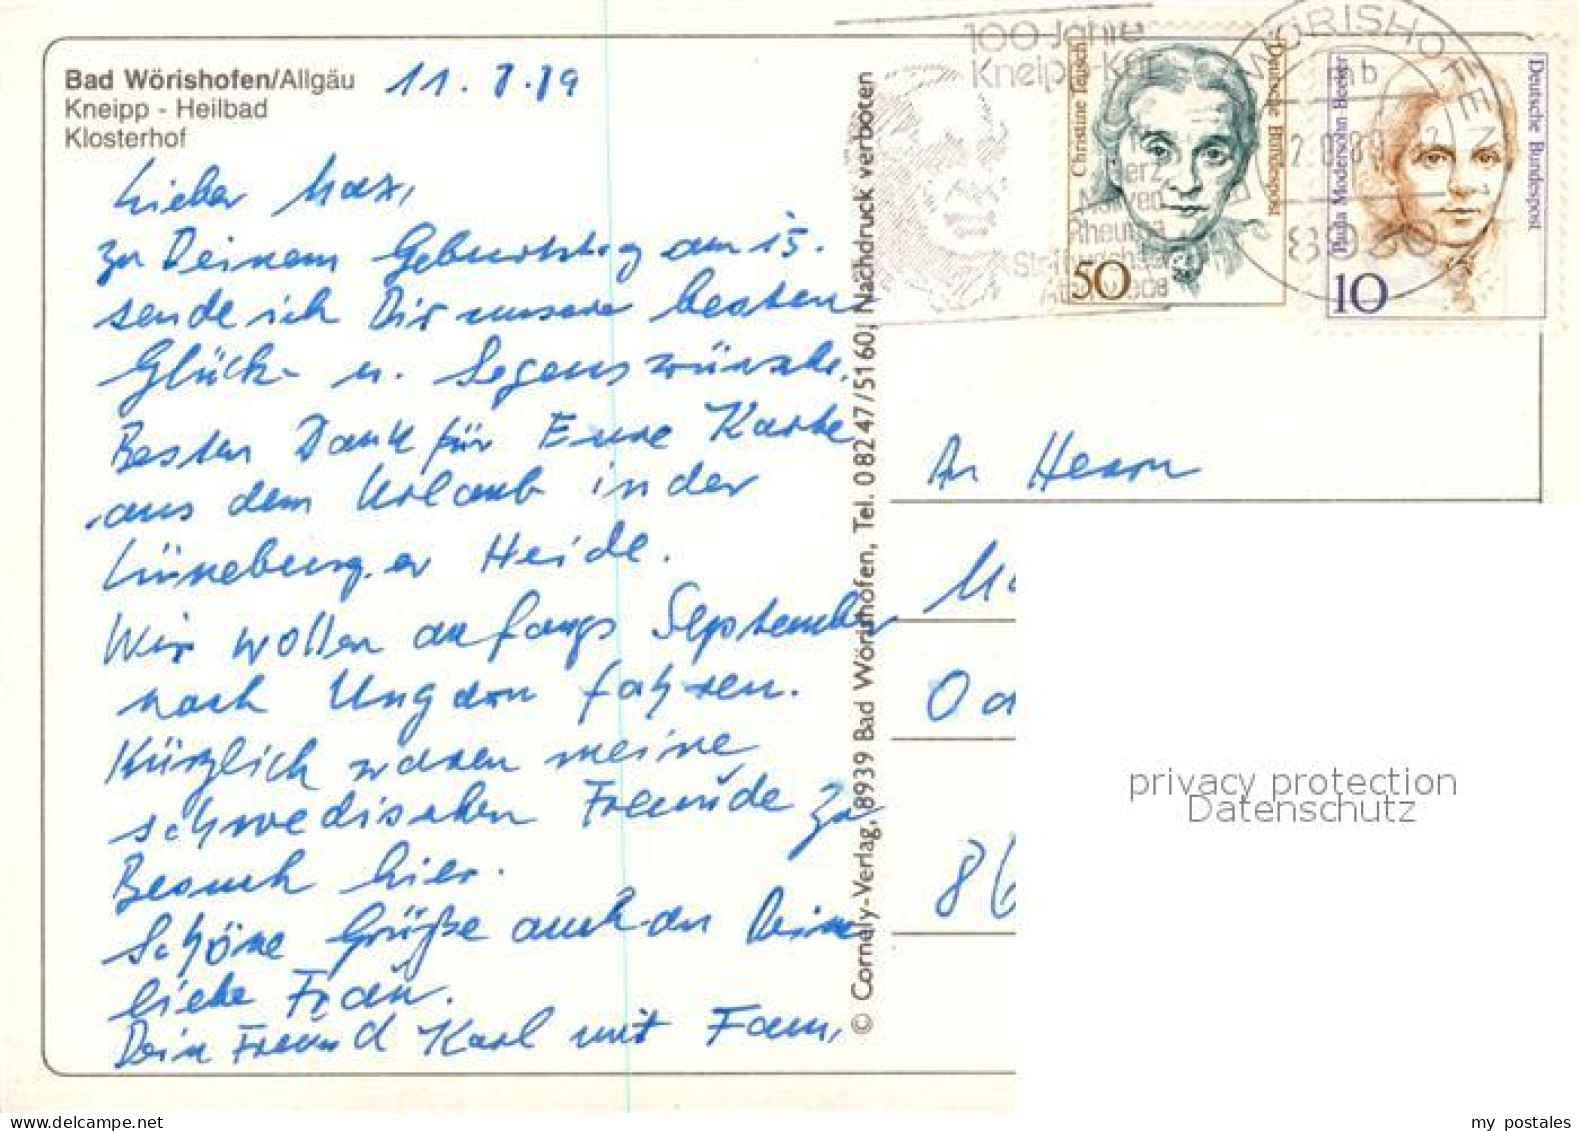 Bad Wörishofen/Allgäu
Kneipp - Heilbad
Klosterhof
11.8.89
Lieber Max,
zu Deinem Geburtstag am 15.
sende ich Dir unsere besten
Glück- u. Segenswünsche.
Besten Dank für Eure Karte
aus dem Urlaub in der
Lüneburger Heide.
Wir wollen anfangs September
nach Ungarn fahren.
Kürzlich waren meine
schwedischen Freunde zu
Besuch hier.
Schöne Grüße auch an Deine
liebe Frau.
Dein Freund Karl mit Fam.
© Cornely-Verlag, 8939 Bad Wörishofen, Tel. 08247/5160, Nachdruck verboten
100 Jahre
Kneipp-Kur
Herz
Nerven
Rheuma
WÖRISHOFEN
mb
8939
Christine Teusch
Deutsche Bundespost
50
Paula Modersohn-Becker
Deutsche Bundespost
10
An Herrn
86
privacy protection
Datenschutz
www.delcampe.net
my_postales